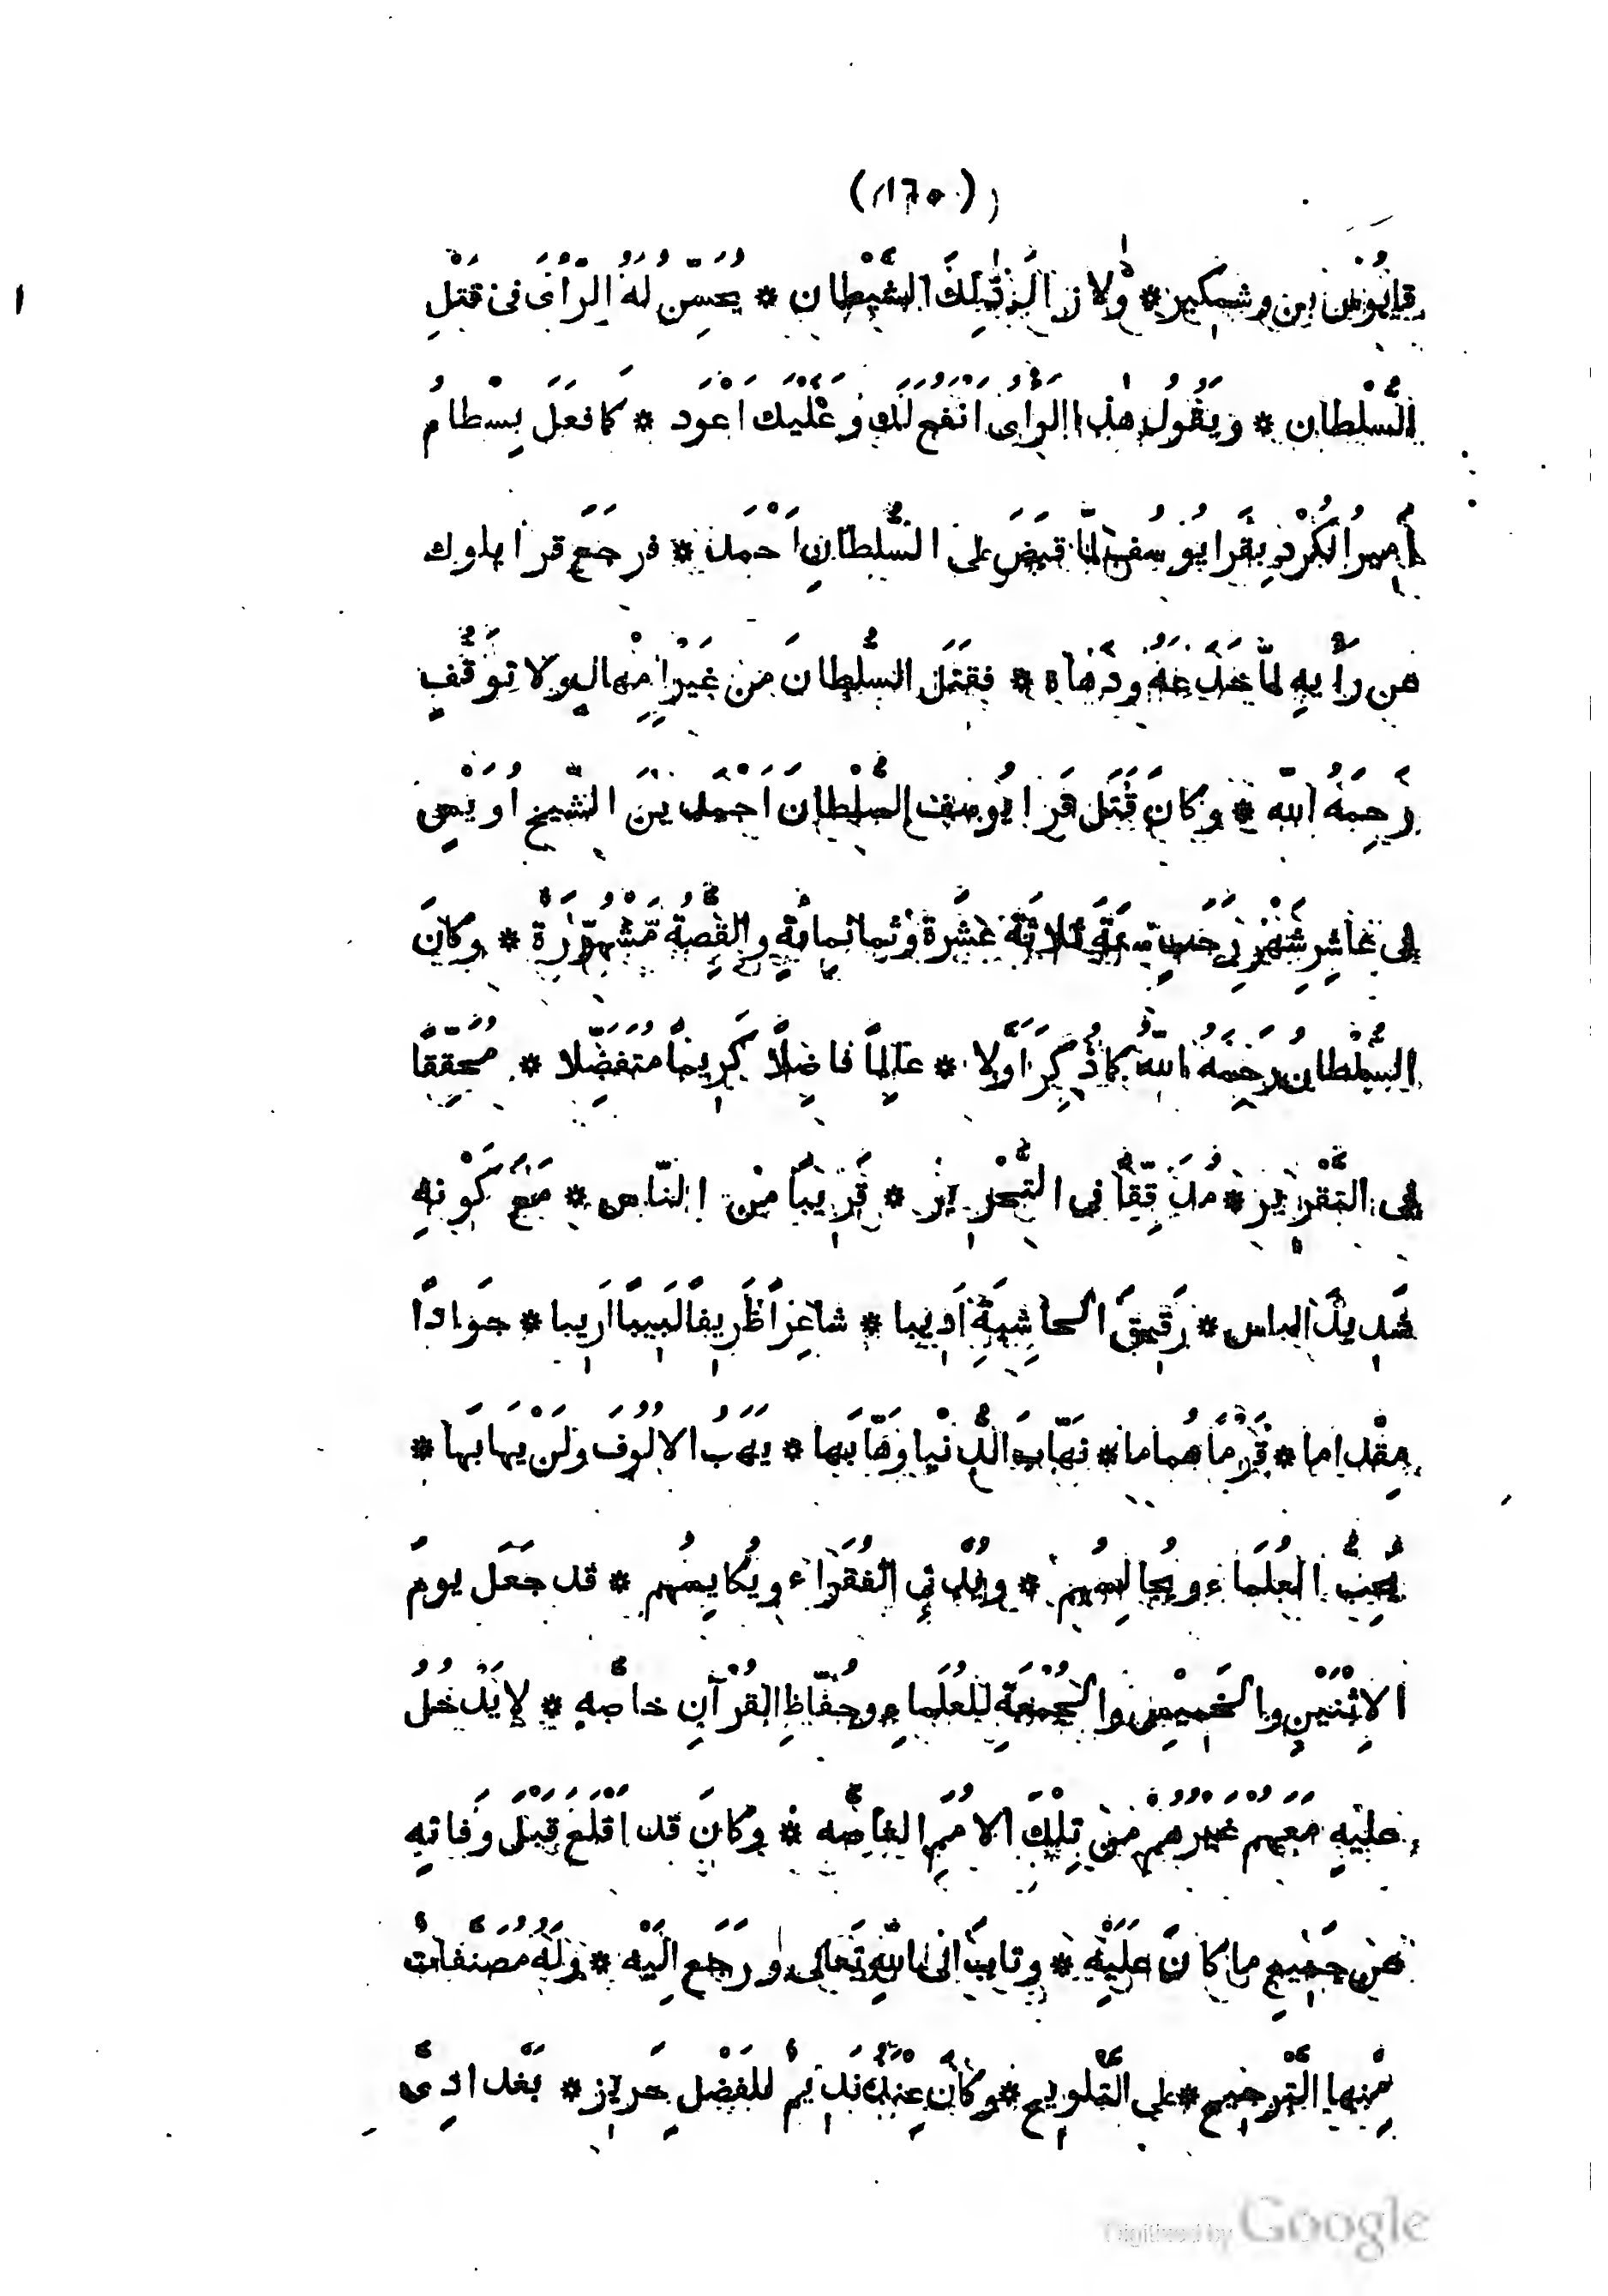 (١٦٥)
قابُوسَ بن وشمكير * ولا زالَ ذٰلِكَ الشَّيْطان * يُحَسِّنُ لَهُ الرَّأْىَ فى قَتْلِ
السُّلْطان * ويَقُولُ هٰذا الرَّأىُ اَنْفَعُ لَكَ وَعَلَيْكَ اَعْوَد * كما فَعَلَ بِسْطامُ
أَميرُ الكُرْدِ بِقَرا يُوسُفَ لمّا قَبَضَ على السُّلْطانِ اَحْمَد * فرَجَعَ قرا يلوك
عن رَأْيِهِ لمّا خَدَعَهُ ودَهاهُ * فقَتَلَ السُّلْطانَ مِن غَيْرِ اِمْهالٍ ولا تَوَقُّفٍ
رَحِمَهُ اللّه * وكانَ قَتَلَ قرا يُوسُف السُّلْطانَ اَحْمَد بنَ الشَّيخ اُوَيْسٍ
فى عاشِرِ شَهْرِ رَجَبٍ سَنَةَ ثَلاثَةَ عَشْرَةَ وثَمانِمائَةٍ والقِصَّةُ مَشْهُورَةٌ * وكانَ
السُّلْطانُ رَحِمَهُ اللّهُ كما ذُكِرَ اَوَّلا * عالِمًا فاضِلًا كَرِيمًا مُتَفَضِّلا * مُحَقِّقًا
فى التَّقْرِير * مُدَقِّقًا فى التَّحْرِير * قَرِيبًا مِن النّاس * مَعَ كَوْنِهِ
شَدِيدَ الباس * رَقِيقَ الحاشِيَةِ اَدِيبا * شاعِرًا ظَرِيفًا لَبِيبًا اَرِيبا * جَوادًا
مِقْداما * قَرْمًا هُماما * نَهّابَ الدُّنْيا وَهّابَها * يَهَبُ الاُلُوفَ ولَن يَهابَها *
يُحِبُّ العُلَماءَ ويُجالِسُهم * ويُدْنِى الفُقَراءَ ويُكايِسُهم * قد جَعَلَ يومَ
الاِثْنَيْنِ والخَمِيسِ والجُمْعَةِ لِلعُلَماءِ وحُفّاظِ القُرْآنِ خاصَّه * لا يَدْخُلُ
عليْهِ مَعَهُمْ غَيْرُهُم مِن تِلْكَ الاُمَمِ الغاصَّه * وكانَ قد اَقْلَعَ قَبْلَ وَفاتِهِ
عن جَمِيعِ ما كانَ عَلَيْهِ * وتابَ الى اللّهِ تَعالى ورَجَعَ اِلَيْه * ولَهُ مُصَنَّفاتٌ
مِنْها التَّرْجِيح * على التَّلْوِيح * وكانَ عِنْدَهُ نَدِيمٌ للفَضْلِ حَرِيز * بَغْدادِىُّ
Digitized by Google